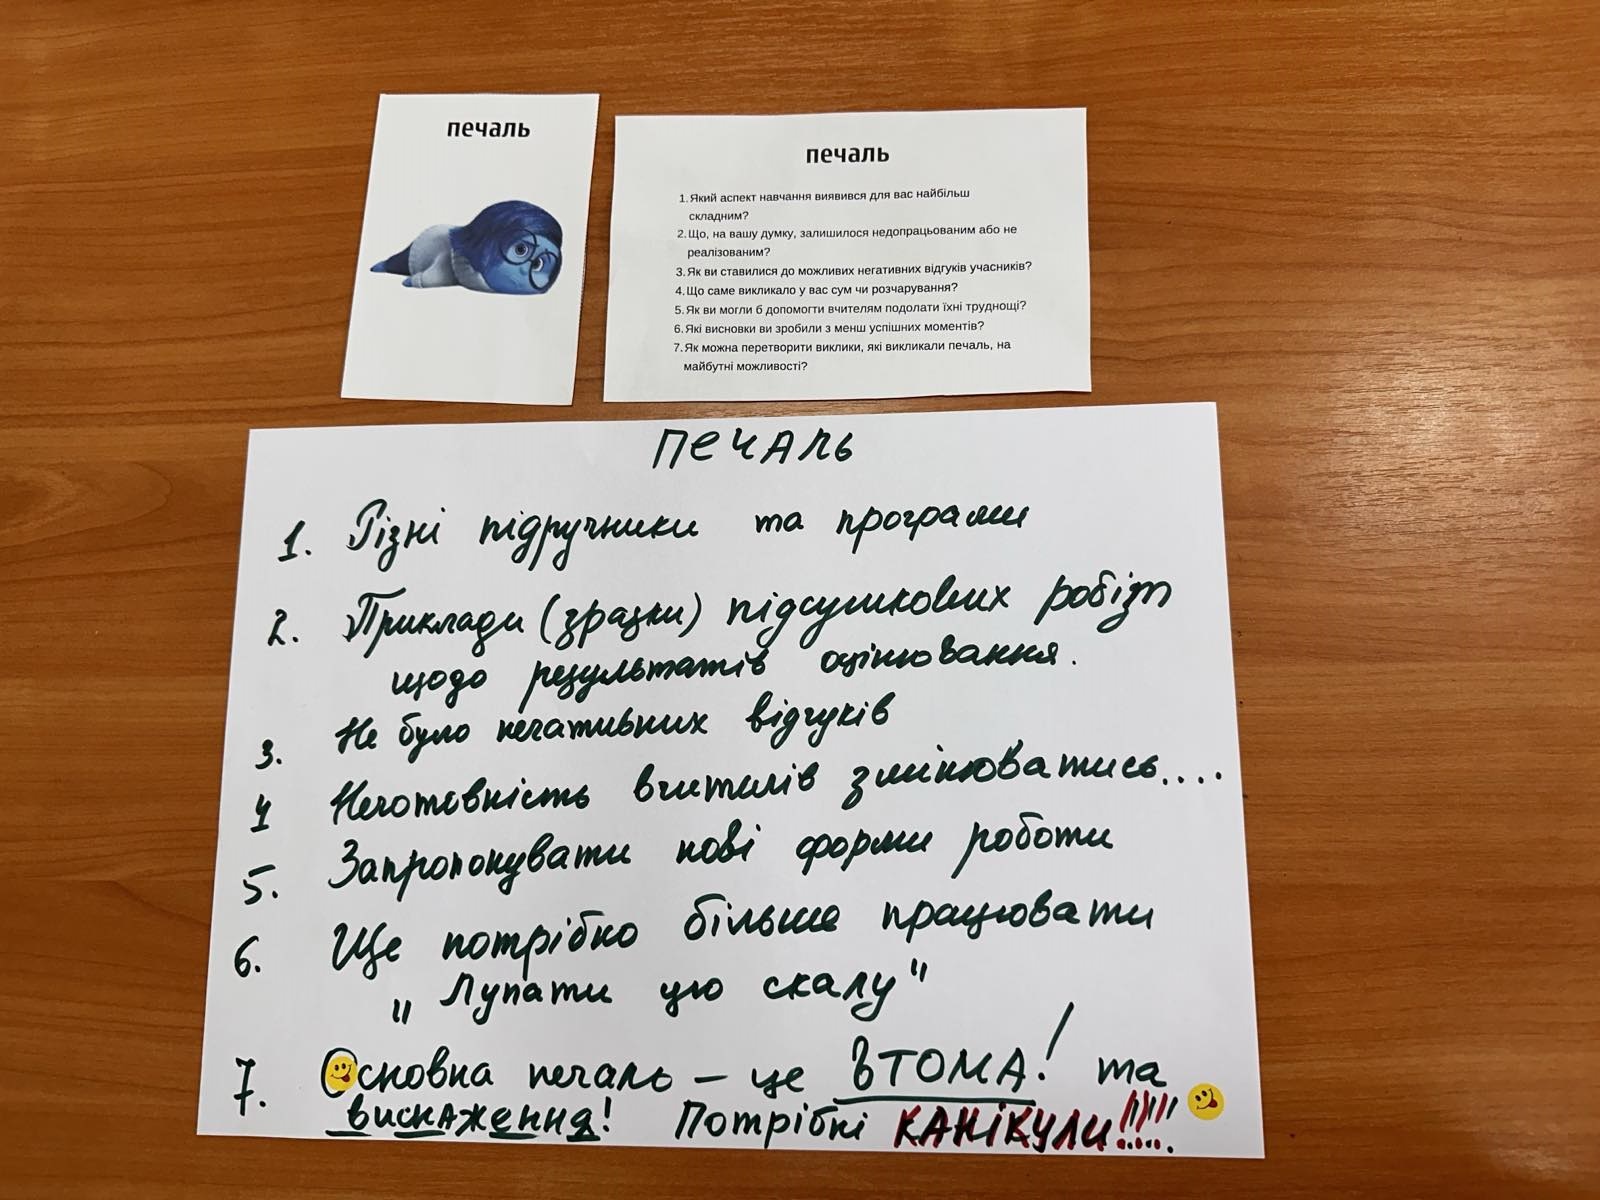 печаль
печаль
1. Який аспект навчання виявився для вас найбільш
складним?
2. Що, на вашу думку, залишилося недопрацьованим або не
реалізованим?
3. Як ви ставилися до можливих негативних відгуків учасників?
4. Що саме викликало у вас сум чи розчарування?
5. Як ви могли б допомогти вчителям подолати їхні труднощі?
6. Які висновки ви зробили з менш успішних моментів?
7. Як можна перетворити виклики, які викликали печаль, на
майбутні можливості?
ПЕЧАЛЬ
1. Різні підручники та програми
2. Приклади (зразки) підсумкових робіт
щодо результатів оцінювання.
3. Не було негативних відгуків
4 Неготовність вчителів змінюватись....
5. Запропонувати нові форми роботи
6. Ще потрібно більше працювати
„Лупати цю скалу"
7. Основна печаль – це ВТОМА! та
виснаження! Потрібні КАНІКУЛИ!!!!!